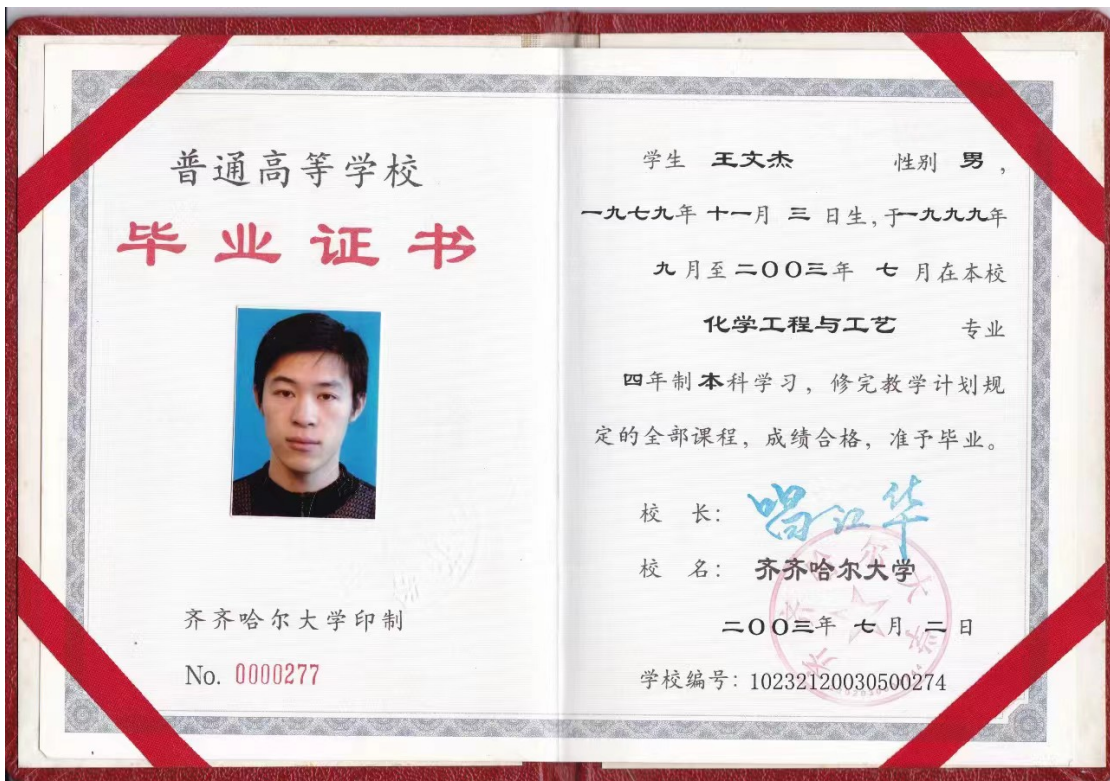 普通高等学校
毕业证书
齐齐哈尔大学印制
No. 0000277
学生 王文杰 性别 男，
一九七九年 十一月 三 日生，于一九九九年
九 月至 二〇〇三年 七 月在本校
化学工程与工艺 专业
四年制本科学习，修完教学计划规
定的全部课程，成绩合格，准予毕业。
校 长：
校 名： 齐齐哈尔大学
二〇〇三年 七 月 二 日
学校编号：10232120030500274
齐齐哈尔大学